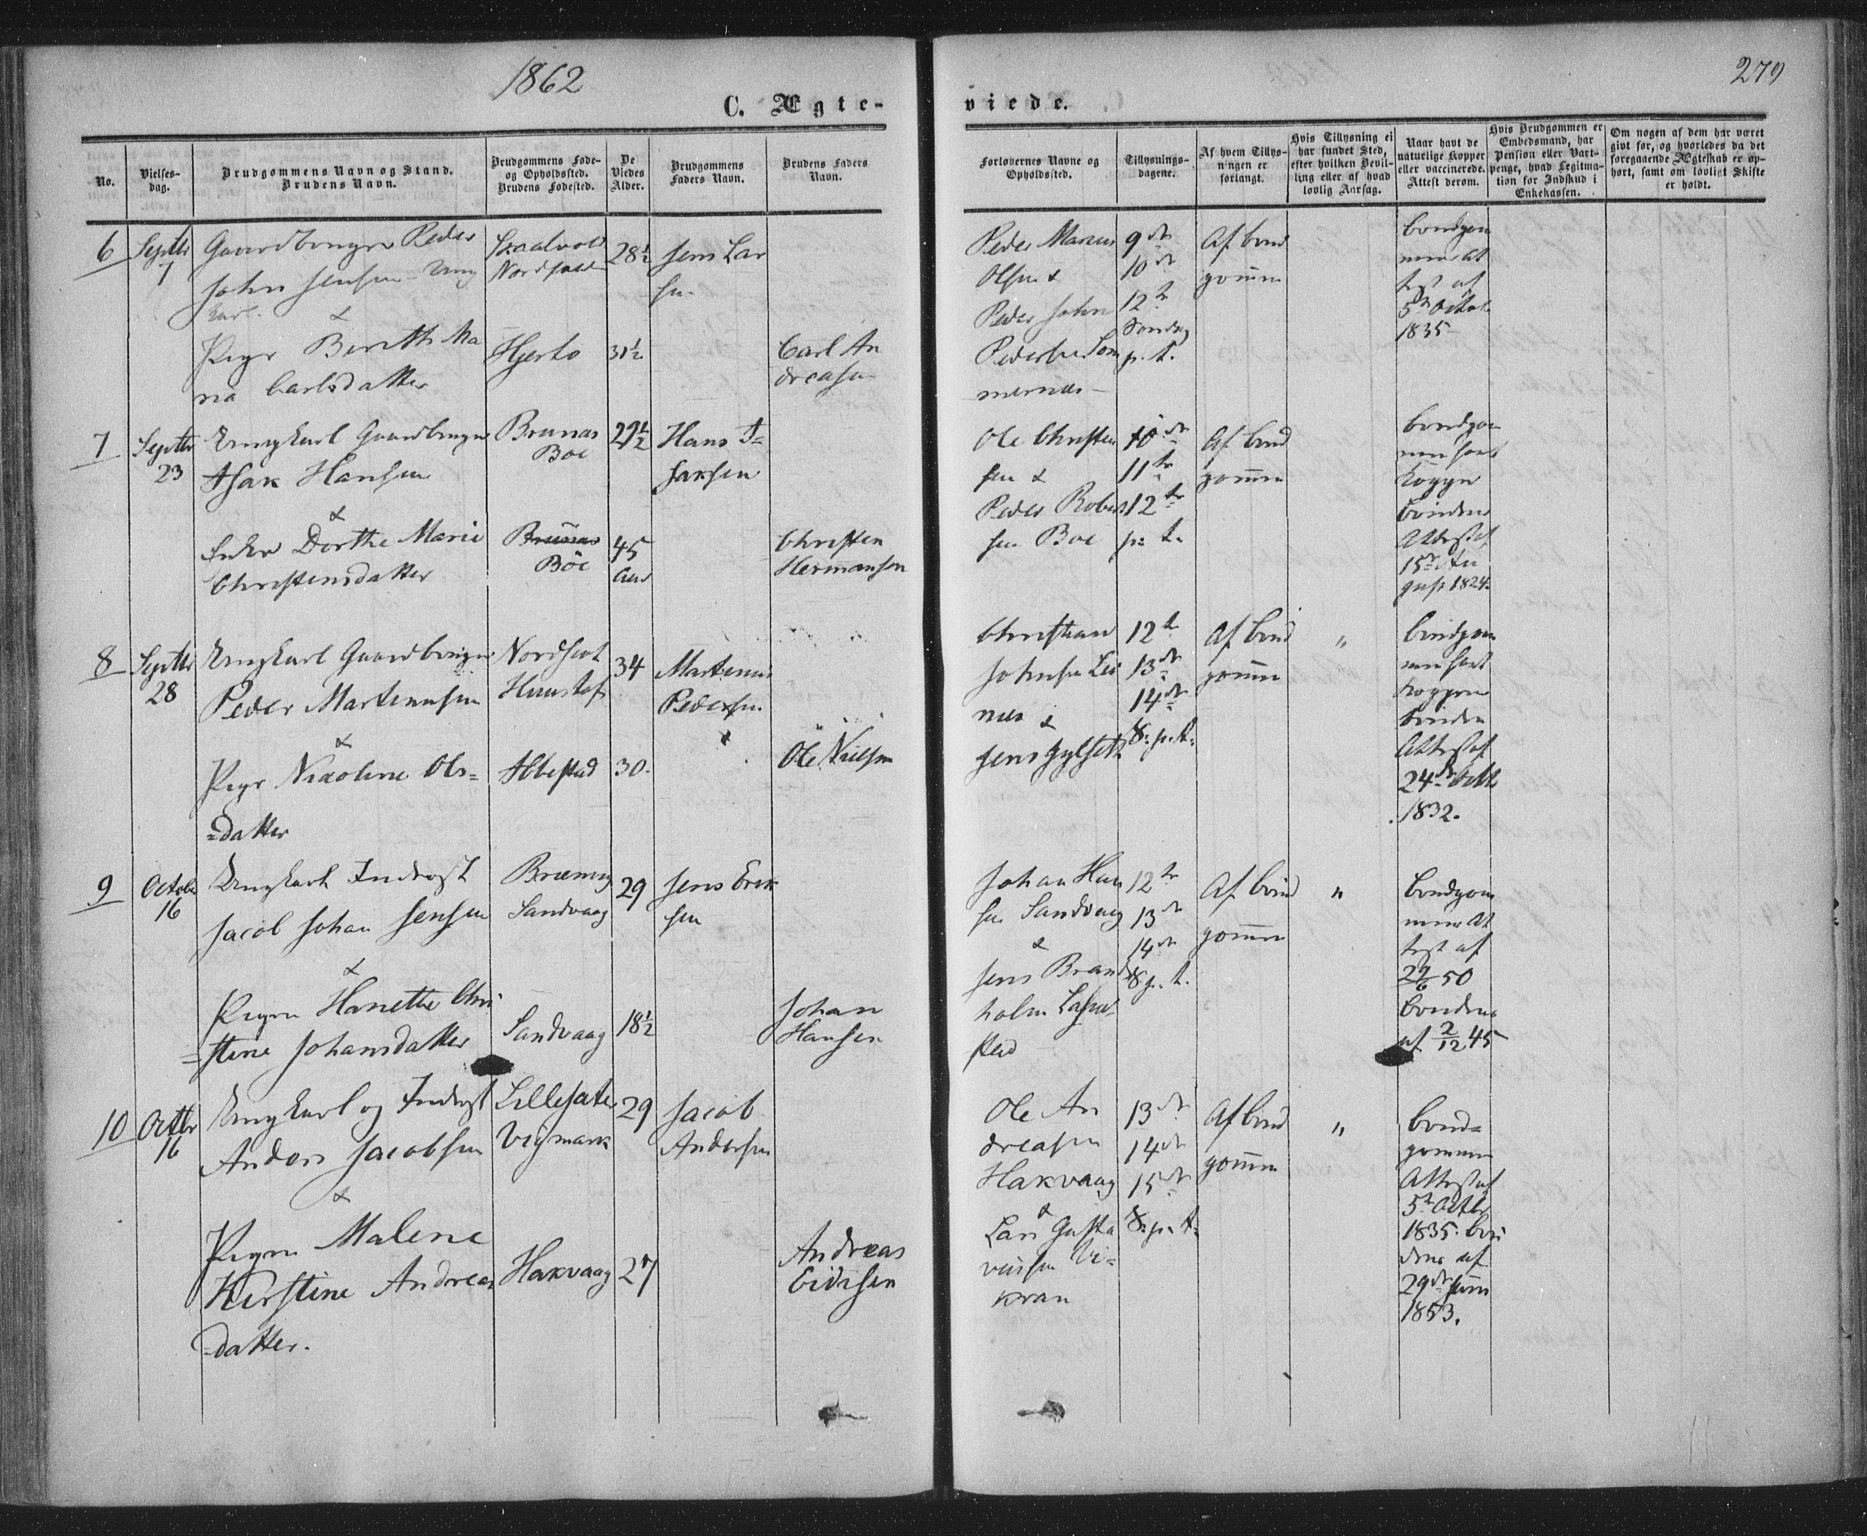 1862
279
C. Ægte-
viede.
No.
Vielses-
dag.
Brudgommens Navn og Stand.
Brudens Navn.
Brudgommens Føde-
og Opholdssted.
Brudens Fødested.
De
Viedes
Alder.
Brudgommens
Faders Navn.
Brudens Faders
Navn.
Forlovernes Navne og
Opholdssted.
Tillysnings-
dagene.
Af hvem Tillys-
ningen er
forlangt.
Hvis Tillysning ei
har fundet Sted,
efter hvilken Bevil-
ling eller af hvad
lovlig Aarsag.
Naar havt de
naturlige Kopper
eller vaccinerede.
Attest derom.
Hvis Brudgommen er
Embedsmand, har
Pension eller Vart-
penge, hvad Legitima-
tion for Indskud i
Enkekassen.
Om nogen af dem har været
givt før, og hvorledes da det
foregaaende Ægteskab er op-
hørt, samt om lovligt Skifte
er holdt.
6
Septbr
7
Gaardbruger Peder
John Jensen Ung
karl.
&
Pige Bereth Ma
ria Carlsdatter
Nordfold
Hjertø
28½
31½
Jens Lar
sen
Carl An
dreasen
Peder Marius
Olsen &
Peder John
Pedersen Som
mernæs
9de
10de
12te
Søndag
p. t.
Af brud
gommen
brudgom
mens At
test af
5te Octob.
1835
7
Septbr
23
Ungkarl Gaardbruger
Isak Hansen
&
Enke Dorthe Marie
Christensdatter
Brunæs
Boe
Brunæs
Böe
29½
45
Aar
Hans I=
saksen
Christen
Hermansen
Ole Christen
sen &
Peder Robert
sen Boe
10de
11te
12te
p. t.
Af brud
gommen
brudgom
men havt
Kopper
brudens
Attest af
15de Au
gust 1824.
8
Septbr
28
Ungkarl Gaardbruger
Peder Martinusen
&
Pige Nicoline Ols=
=datter
Nordfjord
34
30.
Martinus
Pedersen
Ole Nielsen
Christian
Johnsen Lei
næs &
Jens Gylseth
12te
13de
14de
8. p. t.
Af brud
gommen
"
brudgom
men havt
Koppern
bruden
Attest af
24de Octb
1832.
9
Octob
16
Ungkarl Inderst
Jacob Johan Jensen
&
Pigen Hanette Chri
=stine Johansdatter
Sandvaag
Sandvaag
29
18½
Jens Erik
sen
Johan
Hansen
Johan Han
sen Sandvaag
&
Jens Brand
holm
12te
13de
14de
8 p. t.
Af brud
gommen
"
brudgom
mens At
test af
22/6 50
brudens
af 2/12 45
10
Octbr
16
Ungkarl og Inderst
Anders Jacobsen
&
Pigen Malene
Kirstine Andreas
=datter.
Vigmark
Hakvaag
29
27
Jacob
Andersen
Andreas
Ole An
dreasen
Hakvaag
&
Lars Gusta
vussen Vi=
kran
13de
14de
15de
8. p. t.
Af brud
gommen
"
brud=
gommen
Attest af
5te Octbr
1835. bru
dens af
29de Juni
1853.